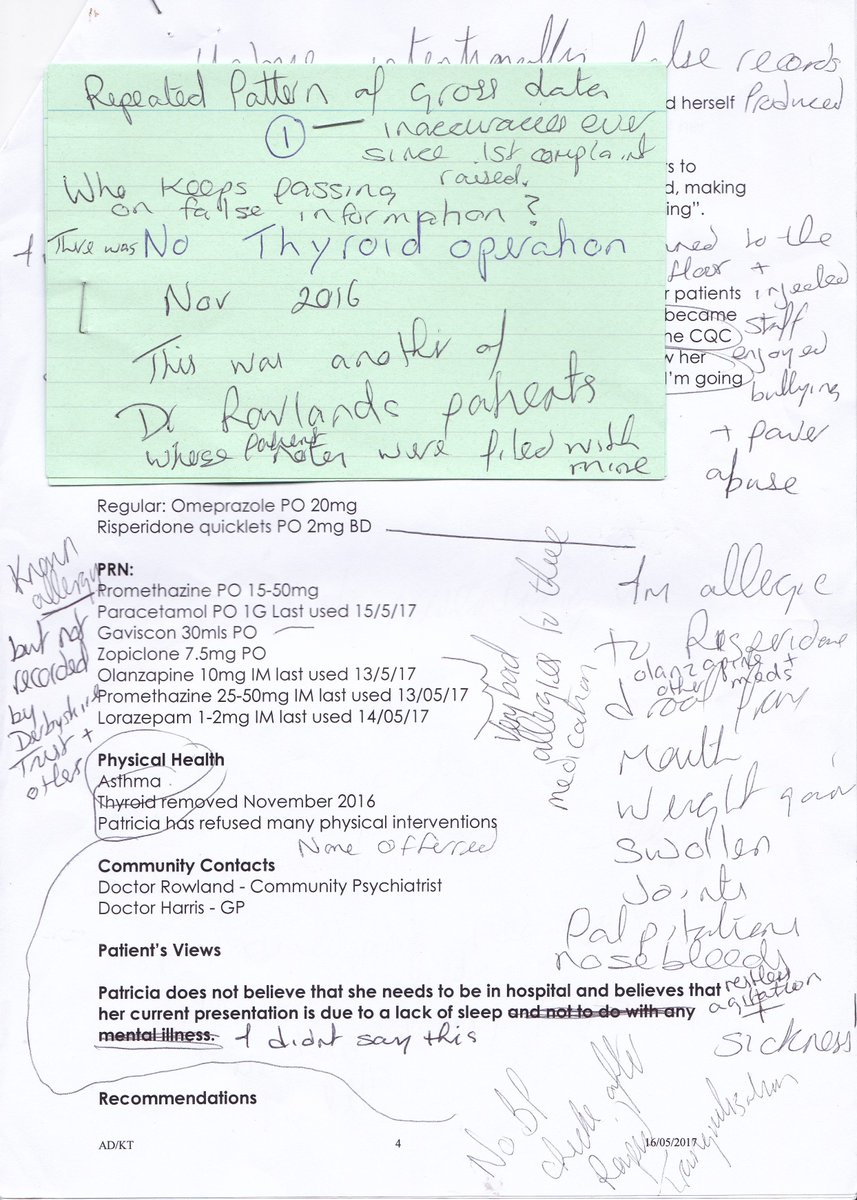 intentionally false records
Repeated Pattern of gross data
① — inaccuracies ever
since 1st complaint
raised.
Who keeps passing
on false information?
There was No Thyroid operation
Nov 2016
This was another of
Dr Rowlands patients
whose patient notes were filed with
mine
d herself Produced
s to
d, making
ing".
to the
floor +
r patients injected
became staff
ne CQC enjoyed
w her bullying
I'm going
+ power
abuse
Regular: Omeprazole PO 20mg
Risperidone quicklets PO 2mg BD
PRN:
Promethazine PO 15-50mg
Paracetamol PO 1G Last used 15/5/17
Gaviscon 30mls PO
Zopiclone 7.5mg PO
Olanzapine 10mg IM last used 13/5/17
Promethazine 25-50mg IM last used 13/05/17
Lorazepam 1-2mg IM last used 14/05/17
Known
allergy
but not
recorded
by
Derbyshire
Trust +
other
Very bad
allergies to these
medication
I'm allergic
to Risperidone
olanzapine +
other meds
Mouth
weight gain
swollen
joints
Palpitations
nosebleeds
restless
agitation
+
sickness
Physical Health
Asthma
Thyroid removed November 2016
Patricia has refused many physical interventions
None offered
Community Contacts
Doctor Rowland - Community Psychiatrist
Doctor Harris - GP
Patient's Views
Patricia does not believe that she needs to be in hospital and believes that
her current presentation is due to a lack of sleep and not to do with any
mental illness. I didnt say this
Recommendations
No BP
checks after
Rapid
Tranquilisation
AD/KT
4
16/05/2017